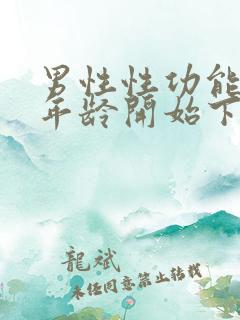 男性性功能
年龄開始下
龍斌
未任同意禁止转载